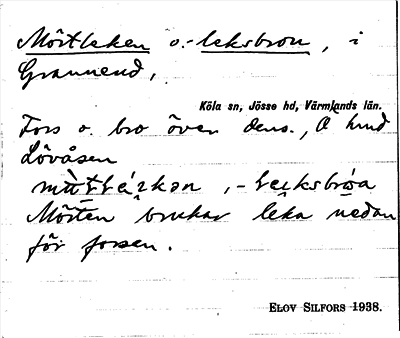 Mörtleken o. -leksbron, i
Grannend,
Köla sn, Jösse hd, Värmlands län.
Fors o. bro över dens., Å hmd
Lövåsen
Mörten brukar leka nedan
för forsen.
ELOV SILFORS 1938.